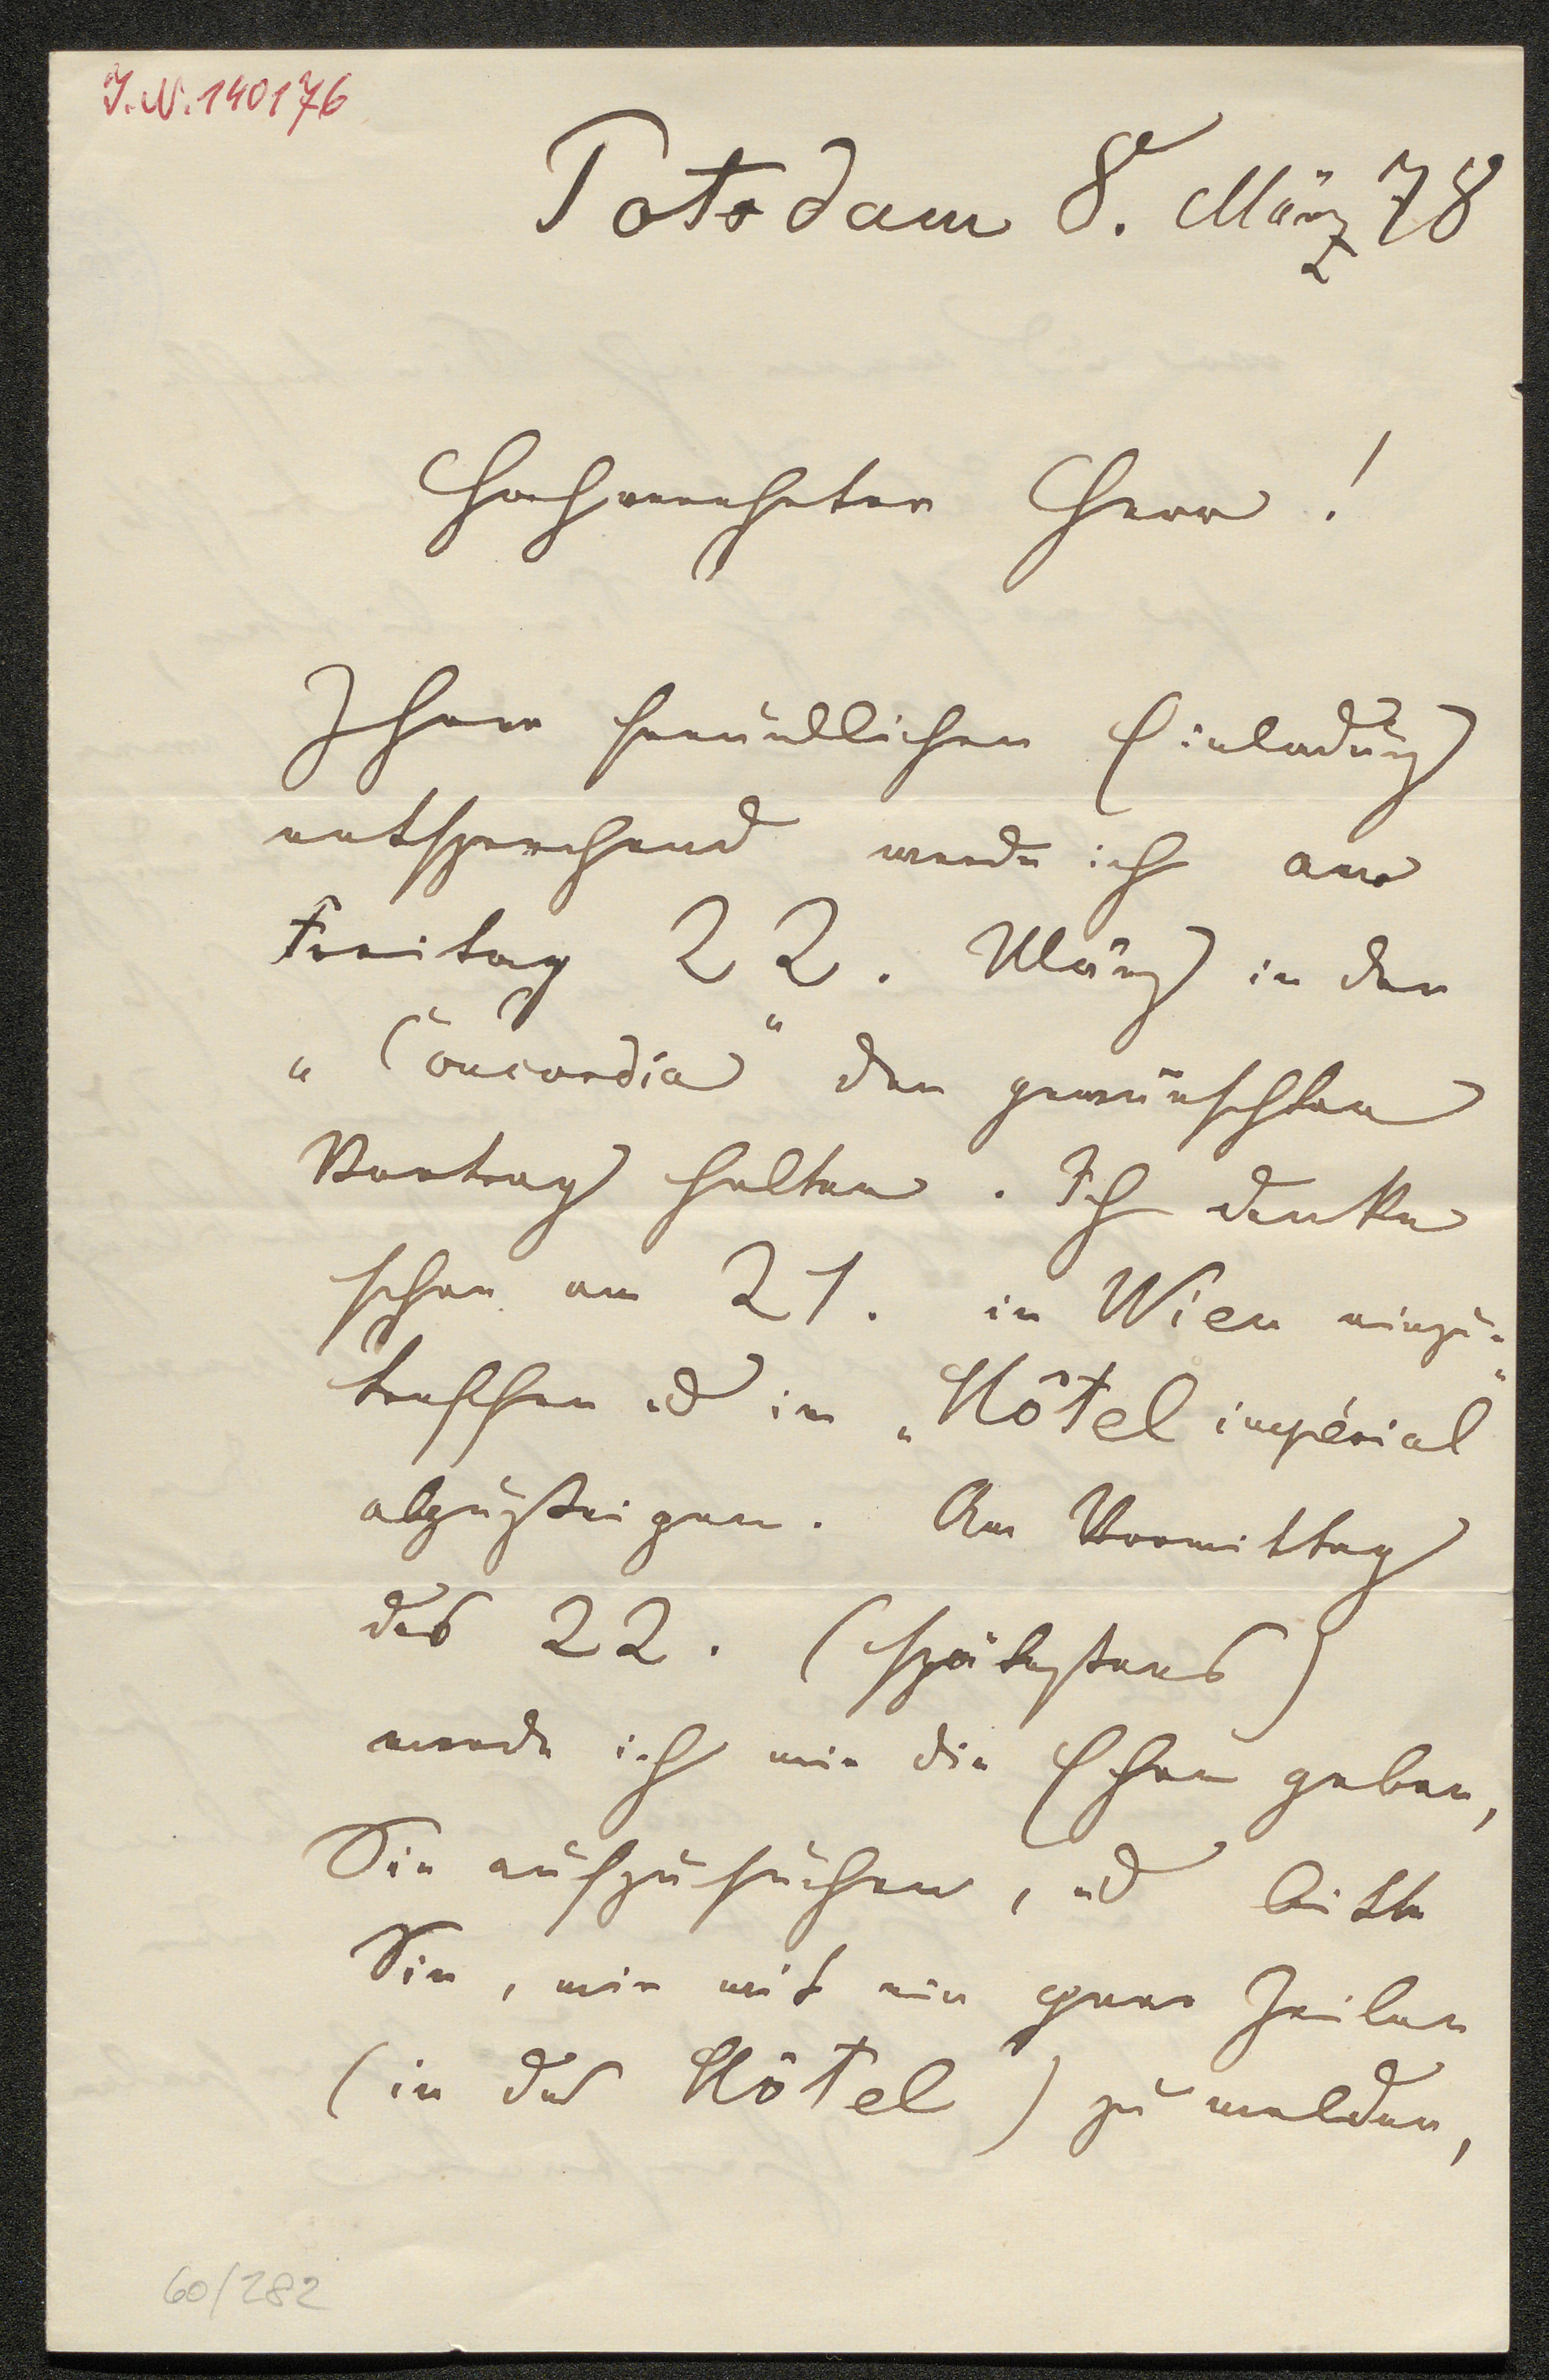 J.N. 140176
Potsdam 8. März 78
Hochverehrter Herr!
Ihrer freundlichen Einladung
entsprechend werde ich am
Freitag 22. März in der
„Concordia“ den gewünschten
Vortrag halten. Ich denke
schon am 21. in Wien einzu-
treffen ud im „Hôtel impérial“
abzusteigen. Am Vormittag
des 22. (spätestens)
werde ich mir die Ehre geben,
Sie aufzusuchen, ud bitte
Sie, mir mit ein paar Zeilen
(in das Hôtel) zu melden,
60/282